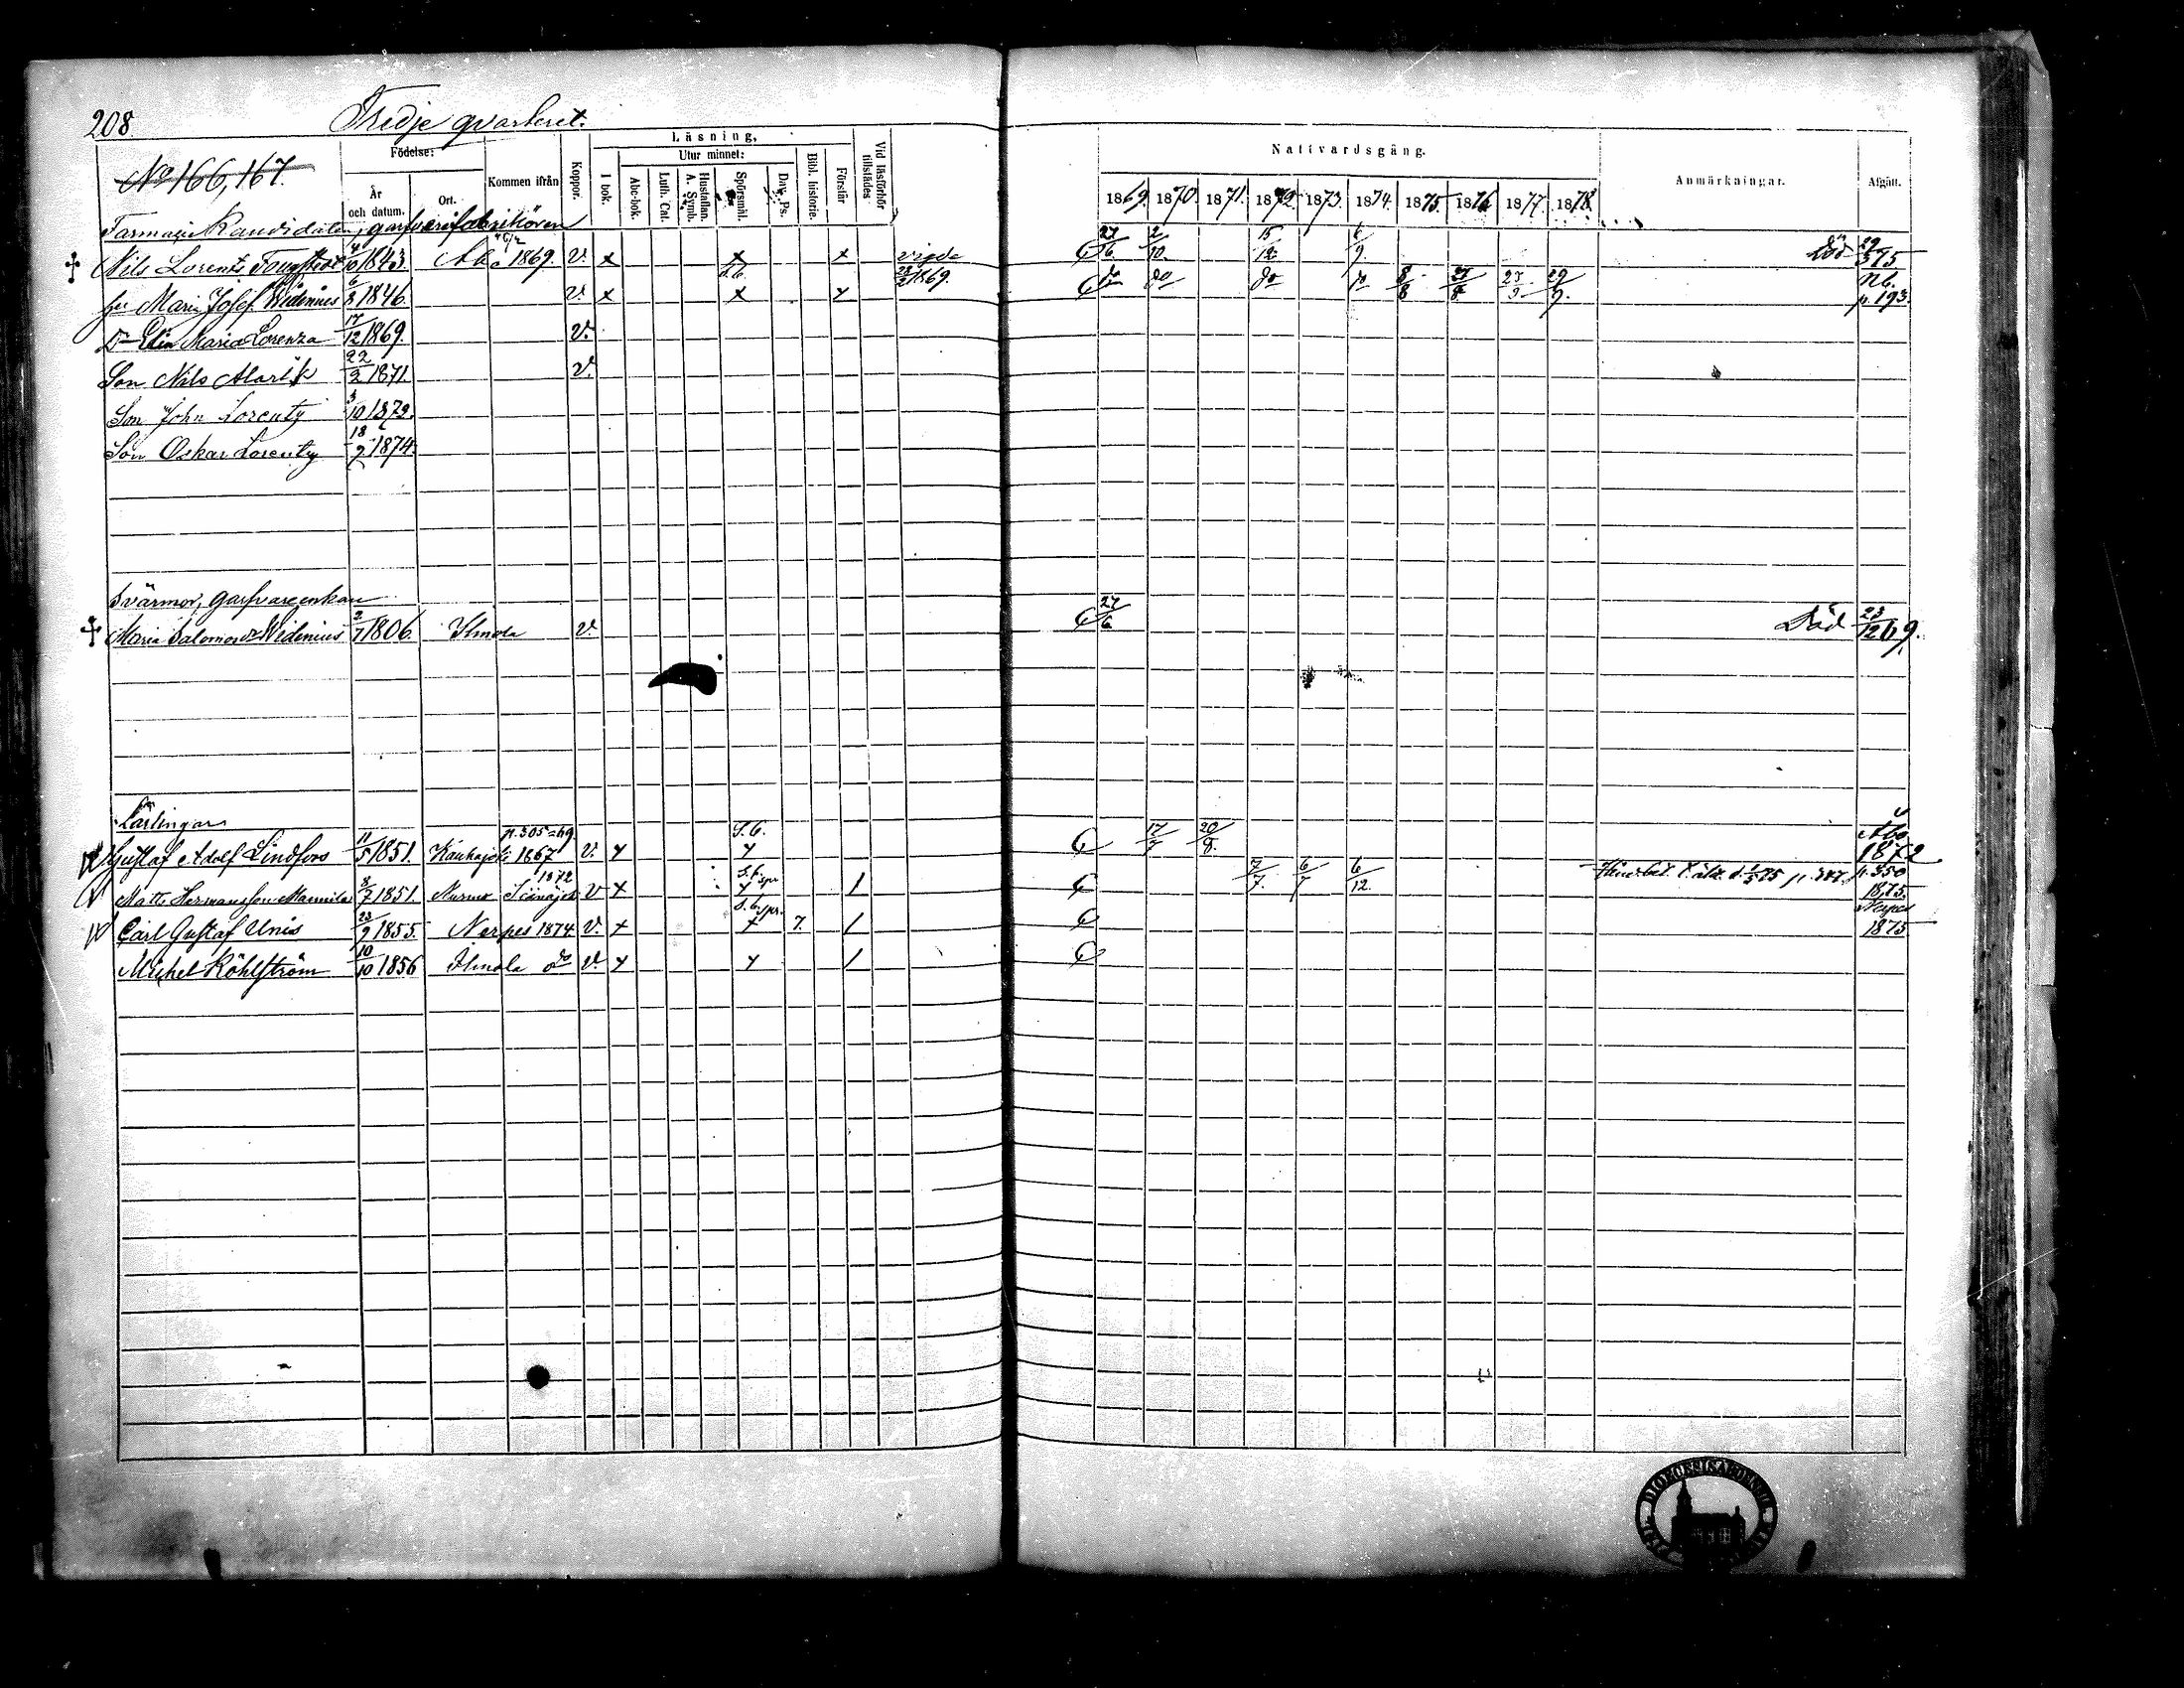 208
Tredje qvarteret.
No 166, 167.
Födelse:
År och datum.
Ort.
Kommen ifrån
Koppor.
Läsning.
I bok.
Utur minnet:
Abc-bok.
Luth. Cat.
A. Symb.
Hustaflan.
Spörsmål.
Dav. Ps.
Bibl. historie.
Förstår
Vid läsförhör tillstädes
Nattvardsgång.
1869. 1870. 1871. 1872. 1873. 1874. 1875. 1876. 1877. 1878.
Anmärkningar.
Afgått.
Farmacie Kandidaten, garfverifabrikören
Nils Lorents Fougstedt 4/10 1843. Åbo 1869. v. x x x vigde 1869. 27/6 2/10. 15/12 6/9 Död 29/3 75
hu Maria Josef. Widenius 6/8 1846. v. x S.b. x x do do do do 8/8 27/8 23/9 29/9. Nb. p. 193.
Dr Elin Maria Lorenza 17/12 1869. v.
Son Nils Alarik 22/2 1871. v.
Son John Lorentz 3/10 1872.
Son Oskar Lorentz 18/9 1874.
Svärmor, garfvareenkan
Maria Salomea Widenius 2/7 1806. Ilmola v. 27/6 Död 23/12 69.
Lärlingar
Gustaf Adolf Lindfors 11/5 1851. Kauhajoki p. 305=69 1867 v. x S.b. x 17/7 20/8. Åbo 1872
Matts Hermansson 8/7 1851. Nurmo 1872 v x S.b. spr. x / 7/7. 6/7 6/12. p. 350 1875.
Carl Gustaf Unis 23/9 1855. Nerpes 1874. v. x S.b. spr. x 7. / Nerpes 1875
Michel Röhlström 10/10 1856 Ilmola do v. x x /